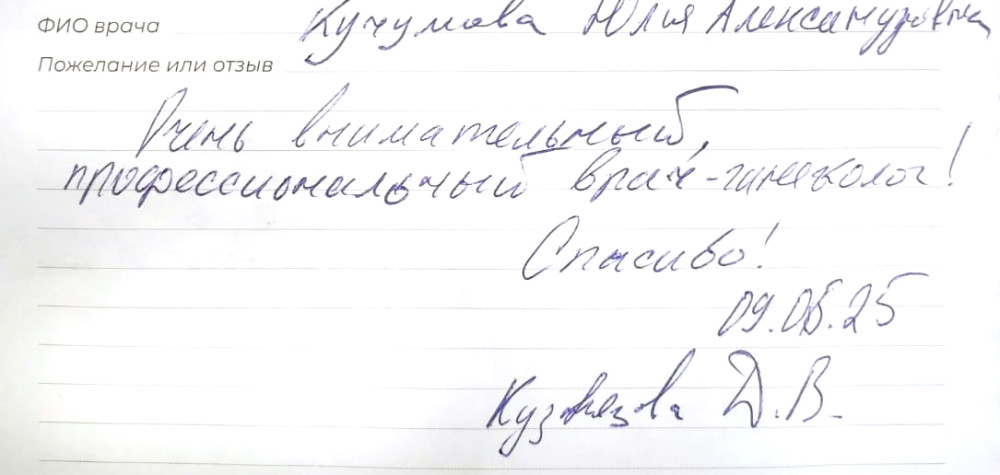 ФИО врача Кучумова Юлия Александровна
Пожелание или отзыв
Очень внимательный,
профессиональный врач-гинеколог!
Спасибо!
09.06.25
Кузнецова Д.В.